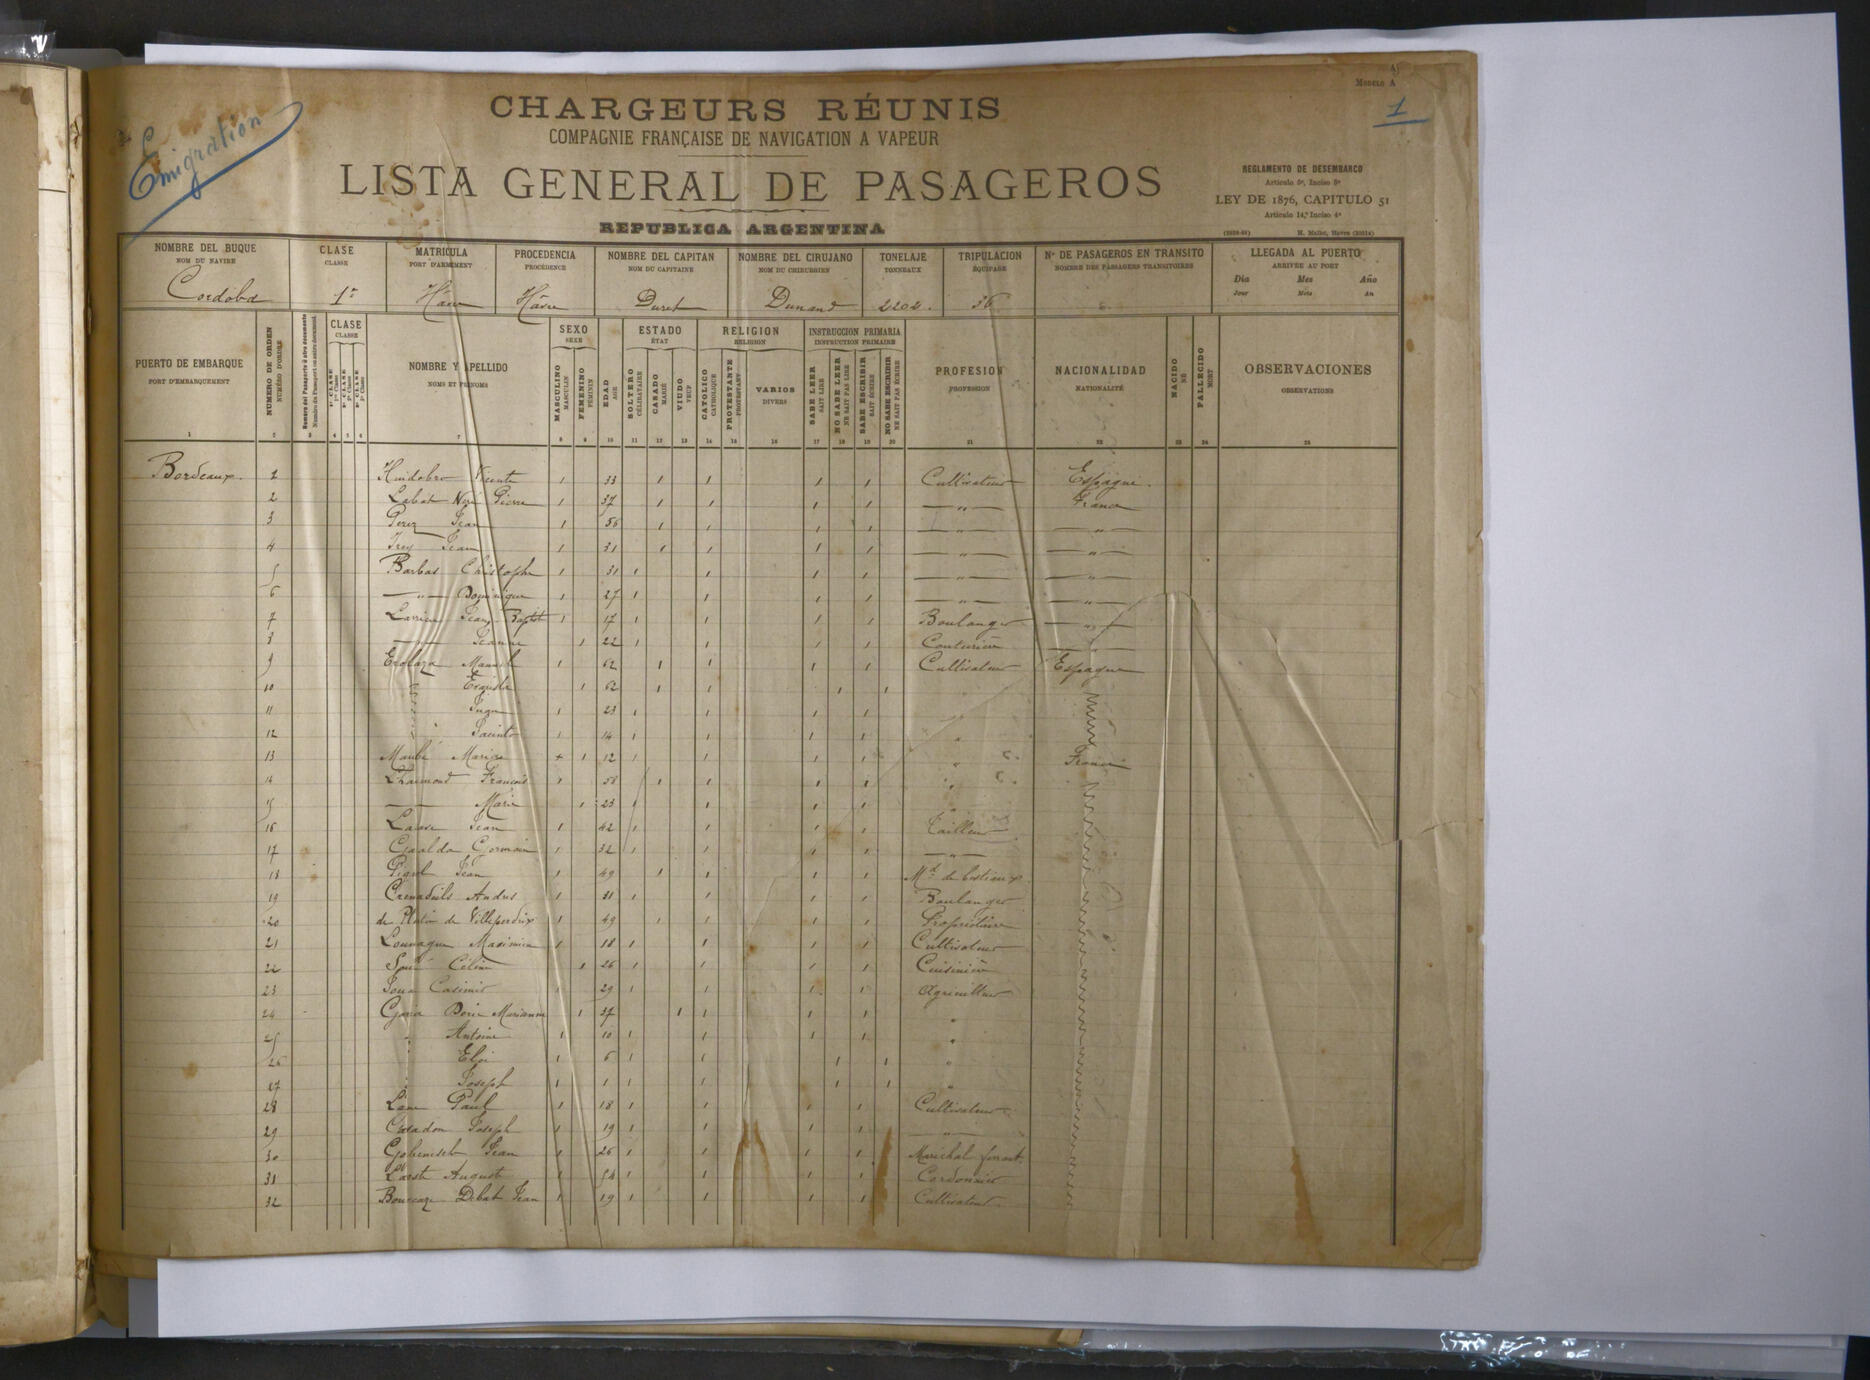 Modelo A
1
Émigration
CHARGEURS RÉUNIS
COMPAGNIE FRANÇAISE DE NAVIGATION A VAPEUR
LISTA GENERAL DE PASAGEROS
REPUBLICA ARGENTINA
REGLAMENTO DE DESEMBARCO
Artículo 5º, Inciso 8º
LEY DE 1876, CAPITULO 51
Artículo 14,º Inciso 4º
NOMBRE DEL BUQUE CLASE MATRICULA PROCEDENCIA NOMBRE DEL CAPITAN NOMBRE DEL CIRUJANO TONELAJE TRIPULACION Nº DE PASAGEROS EN TRANSITO LLEGADA AL PUERTO
NOM DU NAVIRE CLASSE PORT D'ARMEMENT PROCÉDENCE NOM DU CAPITAINE NOM DU CHIRURGIEN TONNEAUX ÉQUIPAGE NOMBRE DES PASSAGERS TRANSITOIRES ARRIVÉE AU PORT
Dia Mes Año
Jour Mois An
Cordoba 1re Hâvre Hâvre Duret Dunand 2202. 36
PUERTO DE EMBARQUE
PORT D'EMBARQUEMENT
NUMERO DE ORDEN
NUMÉRO D'ORDRE
Numero del Pasaporte ú otro documento
Numéro du Passeport ou autre document
CLASE
CLASSE
1ª CLASE
2ª CLASE
3ª CLASE
NOMBRE Y APELLIDO
NOMS ET PRÉNOMS
SEXO
SEXE
MASCULINO
MASCULIN
FEMENINO
FÉMININ
EDAD
AGE
ESTADO
ÉTAT
SOLTERO
CÉLIBATAIRE
CASADO
MARIÉ
VIUDO
VEUF
RELIGION
RELIGION
CATOLICO
CATHOLIQUE
PROTESTANTE
PROTESTANT
VARIOS
DIVERS
INSTRUCCION PRIMARIA
INSTRUCTION PRIMAIRE
SABE LEER
SAIT LIRE
NO SABE LEER
NE SAIT PAS LIRE
SABE ESCRIBIR
SAIT ÉCRIRE
NO SABE ESCRIBIR
NE SAIT PAS ÉCRIRE
PROFESION
PROFESSION
NACIONALIDAD
NATIONALITÉ
NACIDO
NÉ
FALLECIDO
MORT
OBSERVACIONES
OBSERVATIONS
1 2 3 4 5 6 7 8 9 10 11 12 13 14 15 16 17 18 19 20 21 22 23 24 25
Bordeaux. 1 Huidobro 1 33 1 1 1 1 Cultivateur Espagne.
2 Labat Pierre 1 37 1 1 1 1 " France
3 Perez Jean 1 56 1 1 1 1 " "
4 Jean 1 31 1 1 1 1 " "
5 Barbas Christophe 1 31 1 1 1 1 " "
6 " Dominique 1 27 1 1 1 1 " "
7 Larrieu Jean Baptiste 1 17 1 1 1 1 Boulanger "
8 " Jeanne 1 22 1 1 1 1 Couturière "
9 Manuel 1 62 1 1 1 1 Cultivateur Espagne
10 " 1 62 1 1 1 1
11 " 1 23 1 1 1
12 " Jacinto 1 14 1 1 1 "
13 Marie + 1 12 1 1 1 " France
14 François 1 58 1 1 1 1 "
15 Marie 1 23 1 1 1 1 "
16 Jean 1 42 1 1 1 1 Tailleur
17 Germain 1 32 1 1 1 1 "
18 Jean 1 49 1 1 1 1 Md de bestiaux
19 1 31 1 1 1 1 Boulanger
20 de Villeperdrix 1 49 1 1 1 1 Propriétaire
21 1 18 1 1 1 1 Cultivateur
22 Céline 1 26 1 1 1 1 Cuisinière
23 Casimir 1 29 1 1 1 1 Agriculteur
24 Marianne 1 37 1 1 1 1 "
25 " Antoine 1 10 1 1 1 1 "
26 " Eloi 1 6 1 1 1 1 "
27 " Joseph 1 1 1 1 1 1 "
28 Paul 1 18 1 1 1 1 Cultivateur
29 Joseph 1 19 1 1 1 1 "
30 Jean 1 26 1 1 1 1 Maréchal ferrant
31 August 1 54 1 1 1 1 Cordonnier
32 Debat Jean 1 19 1 1 1 1 Cultivateur